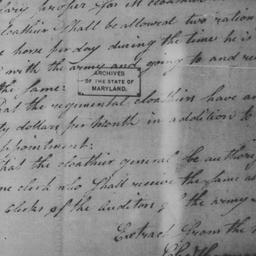 proper for
clothier shall be allowed two ration
horse per day during the time he is
with the army and going to and
the same:
ARCHIVES
OF THE STATE OF
MARYLAND.
that the regimental clothiers have
dollars per month in addition to
appointment:
that the clothier general be authori
one clerk who shall receive the same as
Clerks of the Auditors of the army
Extract from the